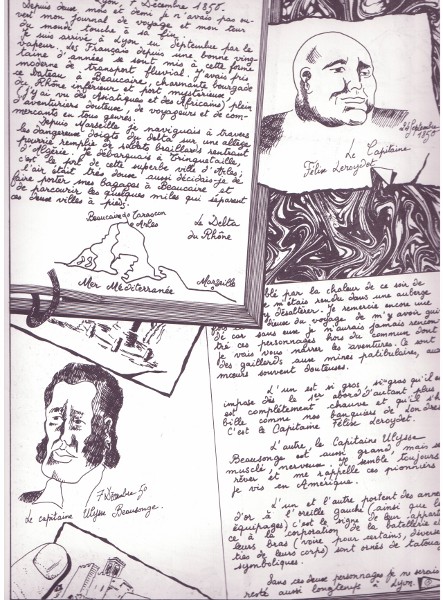 Lyon, 7 Décembre 1850.
Depuis deux mois et demi je n'avais pas ou-
vert mon journal de voyage et mon tour
du monde touche à sa fin.
Je suis arrivé à Lyon en Septembre par le
vapeur. Les Français depuis une bonne ving-
taine d'années se sont mis à cette forme
moderne de transport fluvial. J'avais pris
ce bateau à Beaucaire, charmante bourgade
du Rhône inférieur et port mystérieux
(j'y ai vu des Asiatiques et des Africains) plein
d'aventuriers douteux, de voyageurs et de com-
merçants en tous genres.
Depuis Marseille je naviguais à travers
les dangereux doigts du delta sur une allège
pourrie remplie de soldats braillards rentrant
d'Algérie. Je débarquais à Trinquetaille,
c'est le port de cette superbe ville d'Arles;
l'air était très doux aussi décidais-je de
faire porter mes bagages à Beaucaire et
de parcourir les quelques miles qui séparent
ces deux villes à pied.
Beaucaire Tarascon
Arles
Le Delta
du Rhône
Mer Méditerranée
Marseille
24 Septembre
1850
Le Capitaine
Félix Leroydet
blé par la chaleur de ce soir de
m'étais rendu dans une auberge
y désaltérer. Je remercie encore une
dieux du voyage de m'y avoir gui-
dé car sans eux je n'aurais jamais rencon-
tré ces personnages hors du commun dont
je vais vous narrer les aventures. Ce sont
des gaillards aux mines patibulaires, aux
mœurs souvent douteuses.
L'un est si gros, si gras qu'il en
impose dès le 1er abord d'autant plus
est complètement chauve et qu'il s'ha-
bille comme nos banquiers de Londres
C'est le Capitaine Félix Leroydet.
L'autre, le Capitaine Ulysse
Beausonge est aussi grand mais
musclé, nerveux. Il semble toujours
rêver et me rappelle ces pionniers
je vis en Amérique.
L'un et l'autre portent des anneaux
d'or à l'oreille gauche (ainsi que
équipages) c'est le signe de leur
ce à la corporation de la batellerie
leurs bras (voire pour certains, diverses
ties de leurs corps) sont ornés de tatoua
symboliques.
Sans ces deux personnages je ne serais
resté aussi longtemps à Lyon.
7 Décembre 50
Le capitaine Ulysse Beausonge.